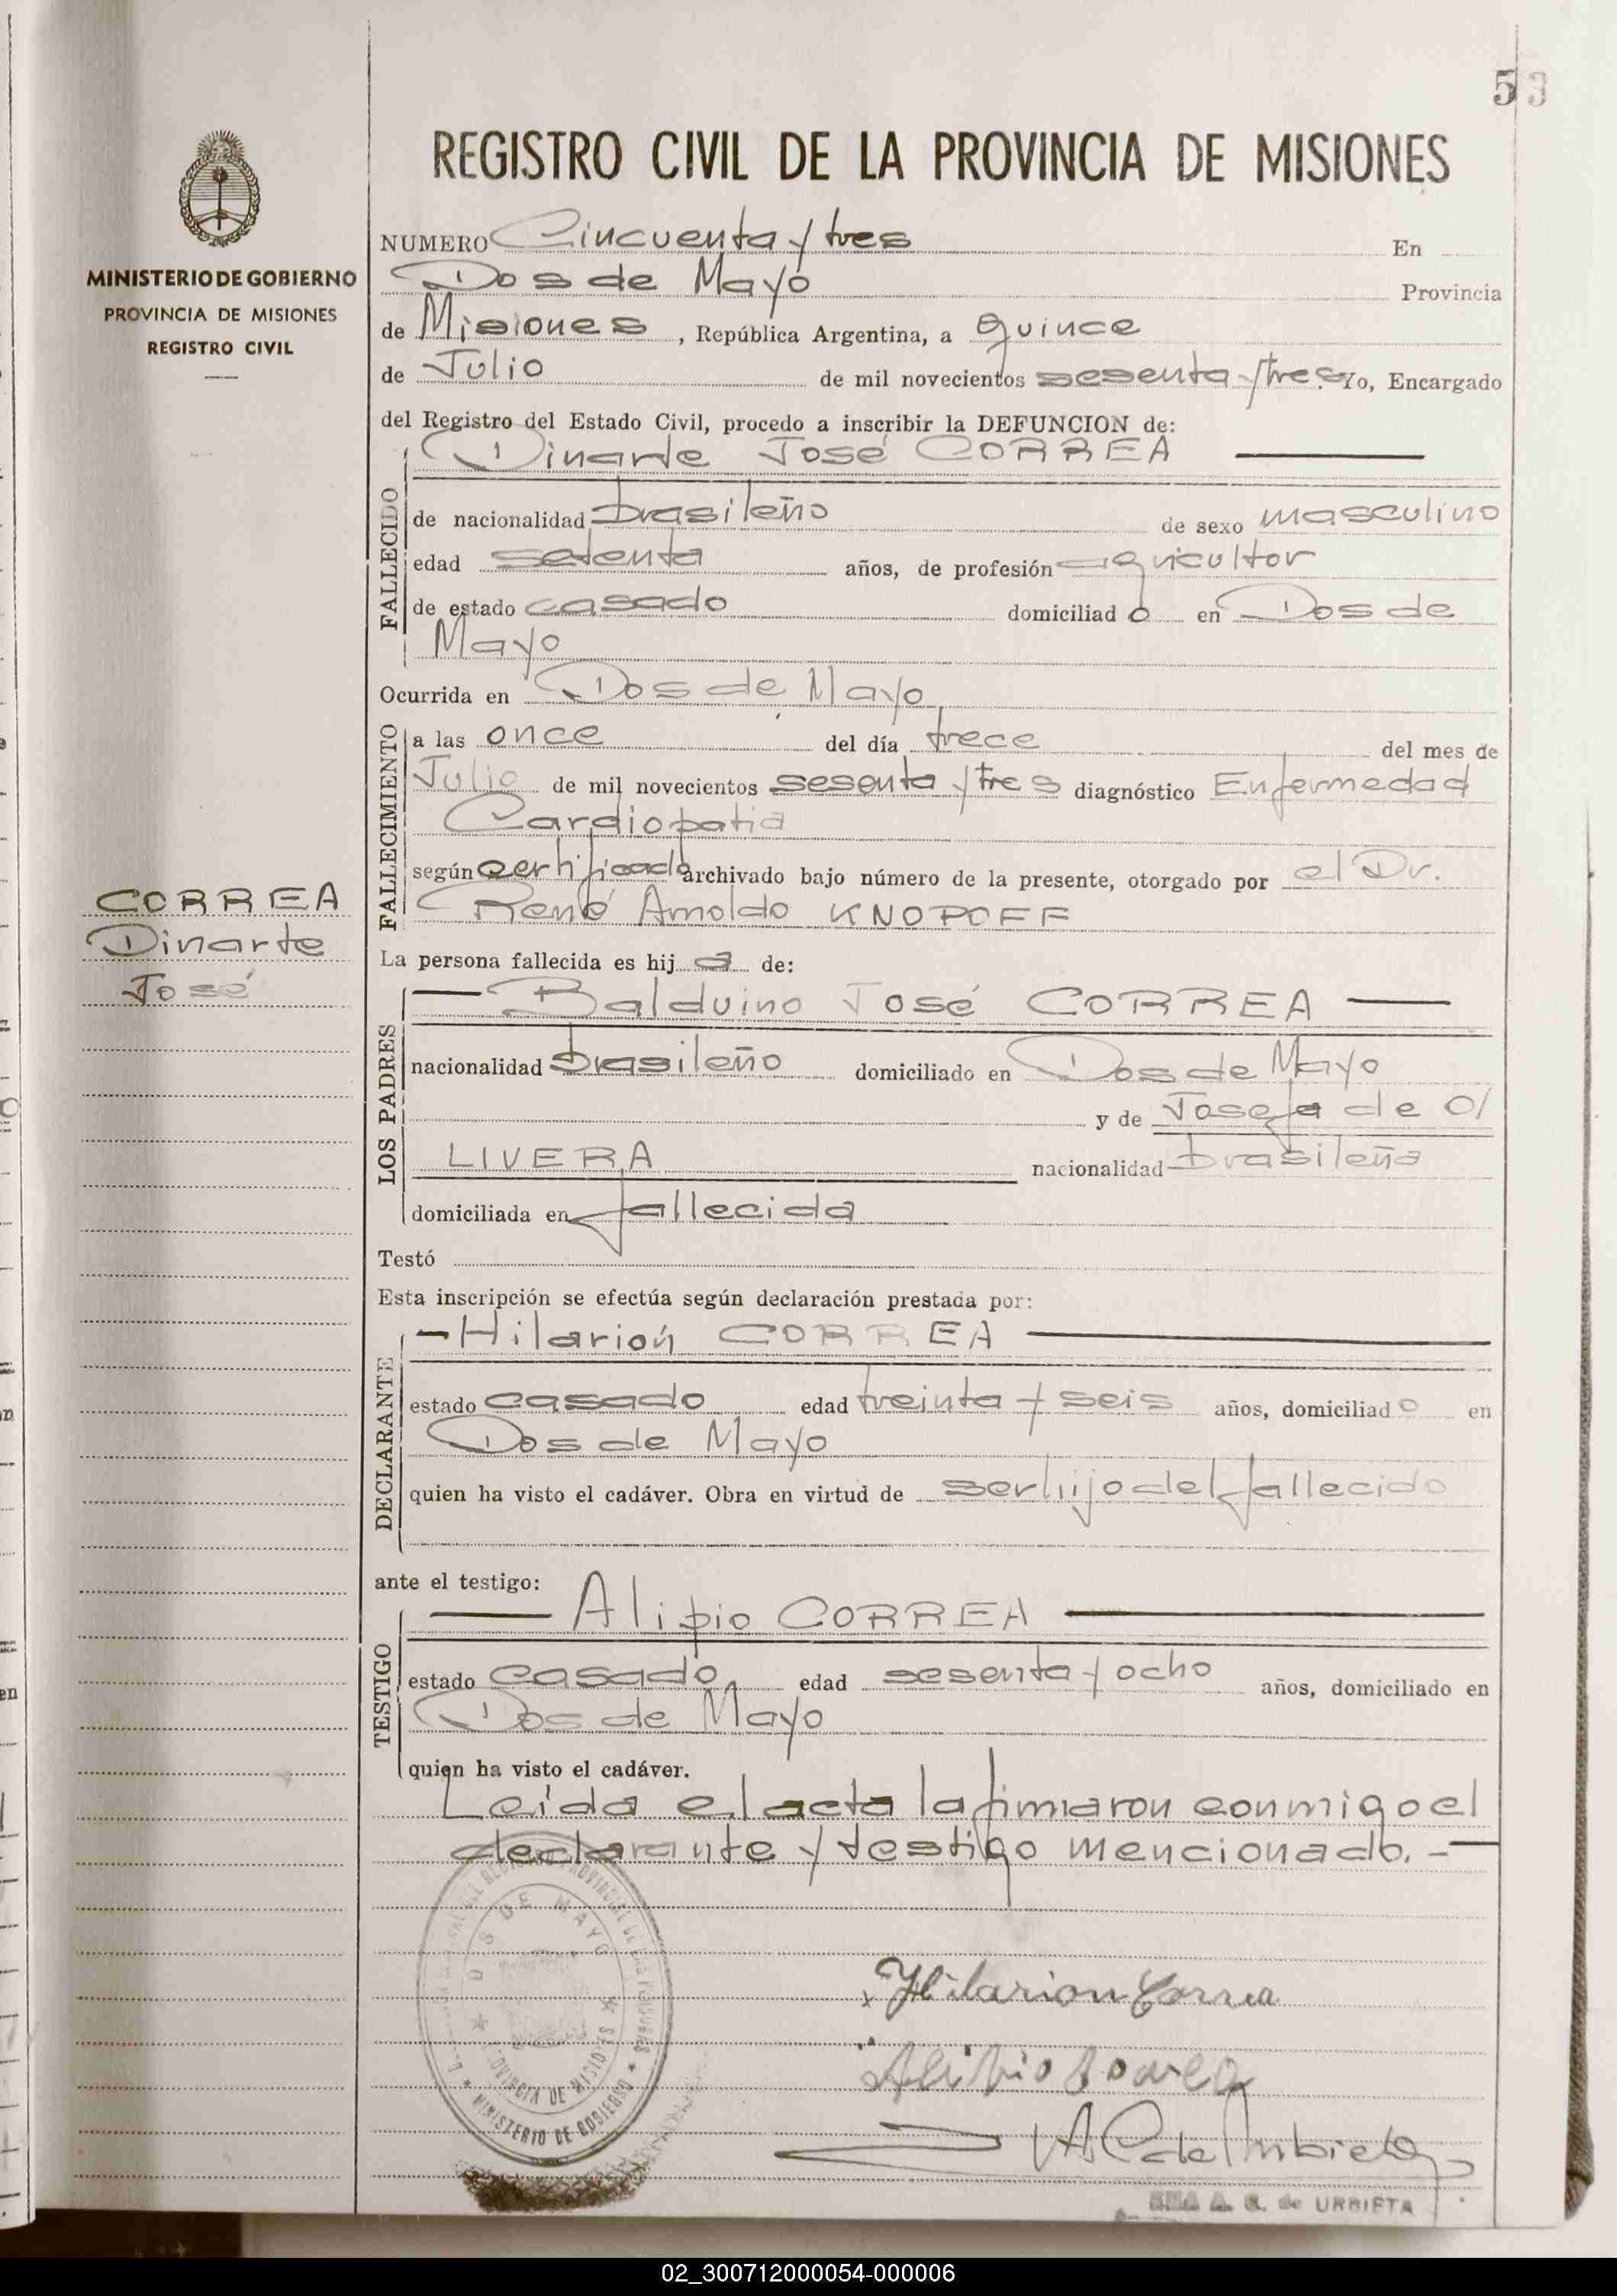 53
REGISTRO CIVIL DE LA PROVINCIA DE MISIONES
MINISTERIO DE GOBIERNO
PROVINCIA DE MISIONES
REGISTRO CIVIL
NUMERO Cincuenta y tres En
Dos de Mayo Provincia
de Misiones, República Argentina, a quince
de Julio de mil novecientos sesenta y tres. Yo, Encargado
del Registro del Estado Civil, procedo a inscribir la DEFUNCION de:
Dinarte José CORREA
FALLECIDO
de nacionalidad brasileño de sexo masculino
edad setenta años, de profesión agricultor
de estado casado domiciliado en Dos de
Mayo
Ocurrida en Dos de Mayo
FALLECIMIENTO
a las once del día trece del mes de
Julio de mil novecientos sesenta y tres diagnóstico Enfermedad
Cardiopatia
según certificado archivado bajo número de la presente, otorgado por el Dr.
René Arnoldo KNOPOFF
CORREA
Dinarte
José
La persona fallecida es hij a de:
LOS PADRES
Balduino José CORREA
nacionalidad brasileño domiciliado en Dos de Mayo
y de Josefa de O/
LIVERA nacionalidad brasileña
domiciliada en fallecida
Testó
Esta inscripción se efectúa según declaración prestada por:
DECLARANTE
-Hilarión CORREA
estado casado edad treinta y seis años, domiciliado en
Dos de Mayo
quien ha visto el cadáver. Obra en virtud de ser hijo del fallecido
ante el testigo:
TESTIGO
Alipio CORREA
estado casado edad sesenta y ocho años, domiciliado en
Dos de Mayo
quien ha visto el cadáver.
Leída el acta la firmaron conmigo el
declarante y testigo mencionado.-
DOS DE MAYO
PROVINCIA DE MISIONES
MINISTERIO DE GOBIERNO
Hilarion Correa
Alipio Correa
A. C. de Urbieta
A. C. de URBIETA
02_300712000054-000006